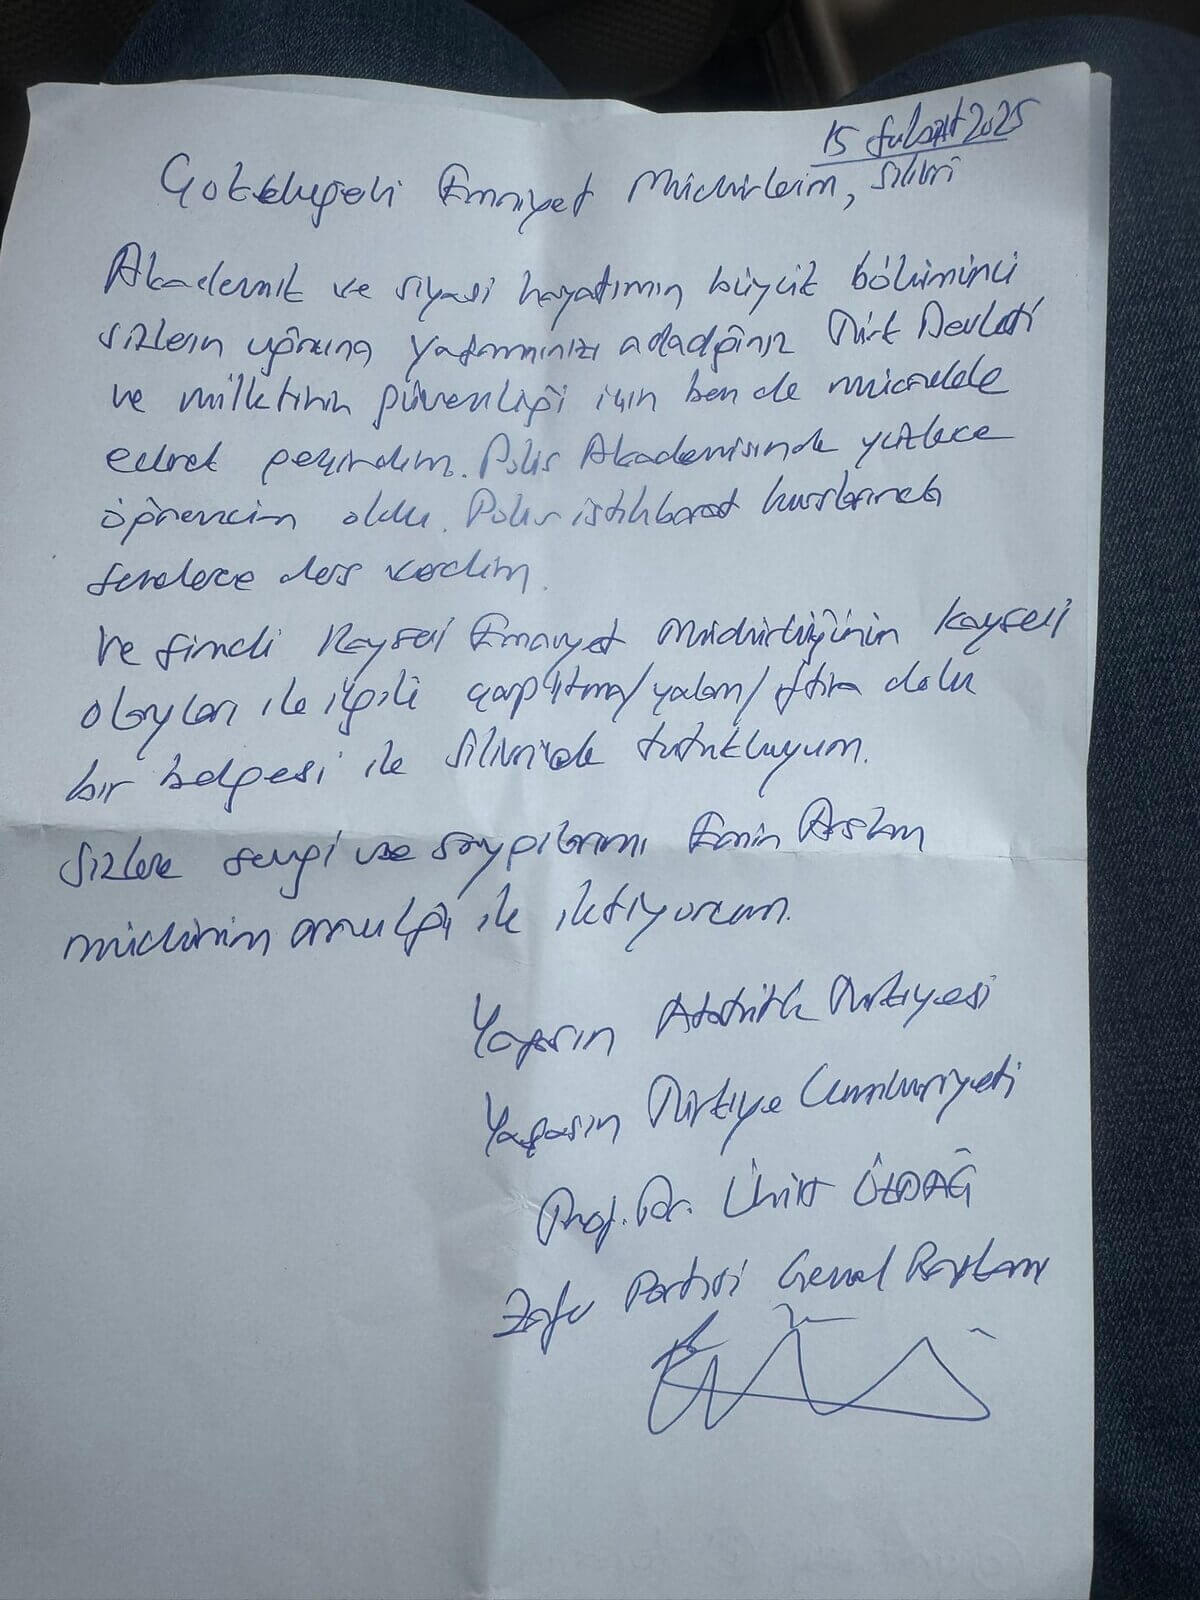 15 Şubat 2025
Silivri
Çok değerli Emniyet Müdürlerim,
Akademik ve siyasi hayatımın büyük bölümünü
sizlerin uğruna yaşamınızı adadığınız Türk Devleti
ve milletinin güvenliği için ben de mücadele
ederek geçirdim. Polis Akademisinde yüzlerce
öğrencim oldu. Polis istihbarat kurslarında
senelerce ders verdim.
Ve şimdi Kayseri Emniyet Müdürlüğünün Kayseri
olayları ile ilgili çarpıtma/yalan/iftira dolu
bir belgesi ile Silivride tutukluyum.
Sizlere sevgi ve saygılarımı Emin Arslan
müdürüm aracılığı ile iletiyorum.
Yaşasın Atatürk Türkiyesi
Yaşasın Türkiye Cumhuriyeti
Prof. Dr. Ümit ÖZDAĞ
Zafer Partisi Genel Başkanı